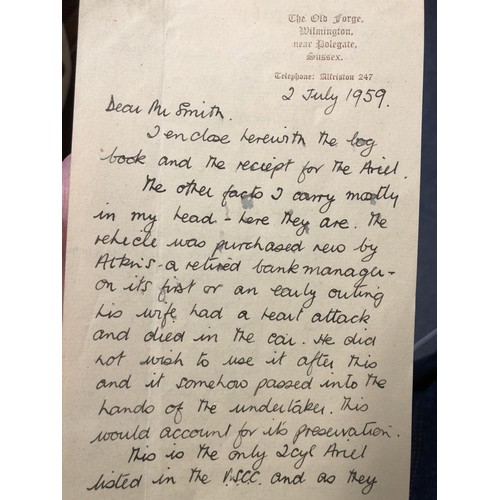 The Old Forge,
Wilmington,
near Polegate,
Sussex.
Telephone: Alfriston 247
2 July 1959.
Dear Mr Smith.
I enclose herewith the log
book and the reciept for the Ariel.
The other facts I carry mostly
in my head - here they are. The
vehicle was purchased new by
Atkins - a retired bank manager -
on its first or an early outing
his wife had a heart attack
and died in the car. He did
not wish to use it after this
and it somehow passed into the
hands of the undertaker. This
would account for its preservation.
This is the only 2cyl Ariel
listed in the V.S.C.C. and as they